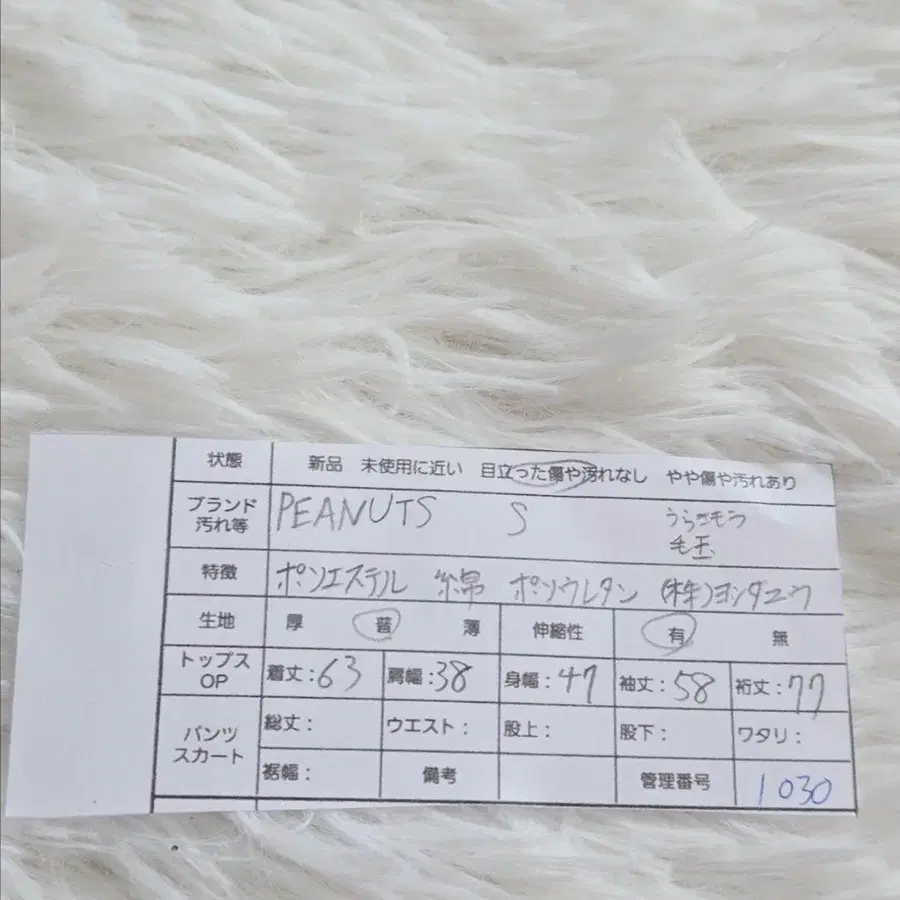 状態 新品 未使用に近い 目立った傷や汚れなし やや傷や汚れあり
ブランド 汚れ等 PEANUTS S
毛玉
特徴 ポリエステル 綿 ポリウレタン (株)
生地 厚 普 薄 伸縮性 有 無
トップス OP 着丈:63 肩幅:38 身幅:47 袖丈:58 裄丈:77
パンツ スカート 総丈: ウエスト: 股上: 股下: ワタリ:
裾幅: 備考 管理番号 1030